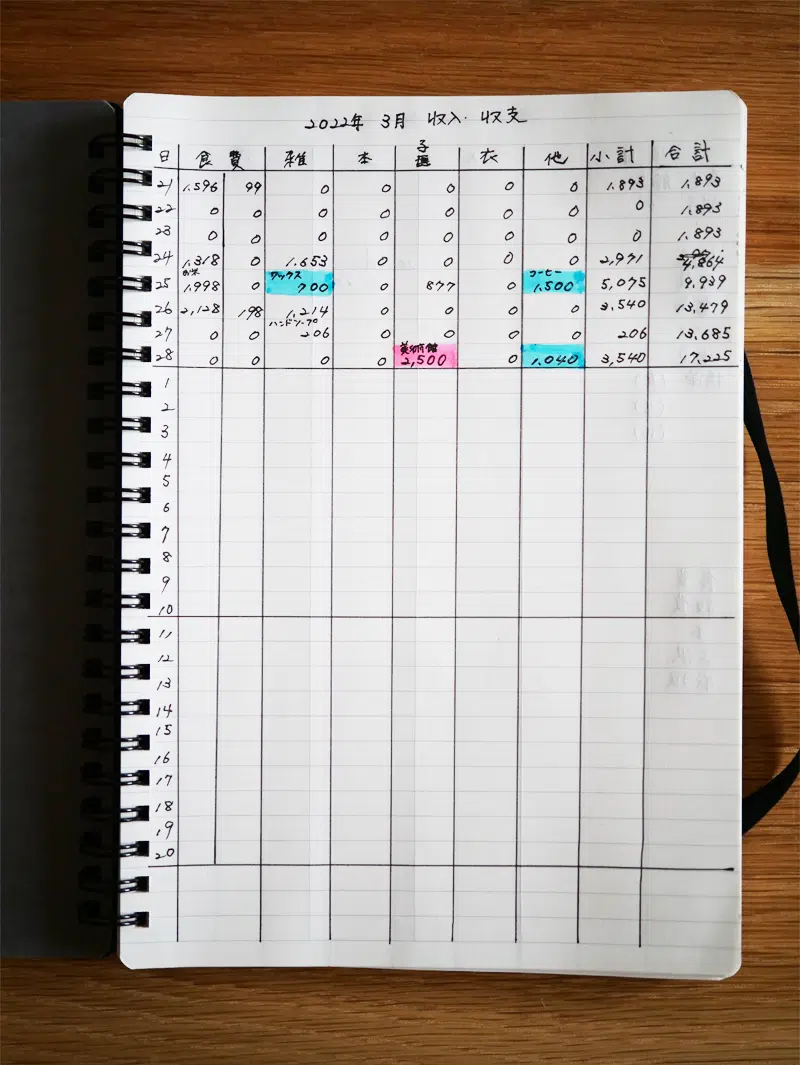 2022年 3月 収入・収支
日 食 費 雑 本 子供 衣 他 小計 合計
21 1,596 99 0 0 0 0 0 1,893 1,893
22 0 0 0 0 0 0 0 0 1,893
23 0 0 0 0 0 0 0 0 1,893
24 1,318 0 1,653 0 0 0 0 2,971 4,864
お米 ワックス コーヒー
25 1,998 0 700 0 877 0 1,500 5,075 9,939
26 2,128 198 1,214 0 0 0 0 3,540 13,479
ハンドソープ
27 0 0 206 0 0 0 0 206 13,685
美術館
28 0 0 0 0 2,500 0 1,040 3,540 17,225
1
2
3
4
5
6
7
8
9
10
11
12
13
14
15
16
17
18
19
20